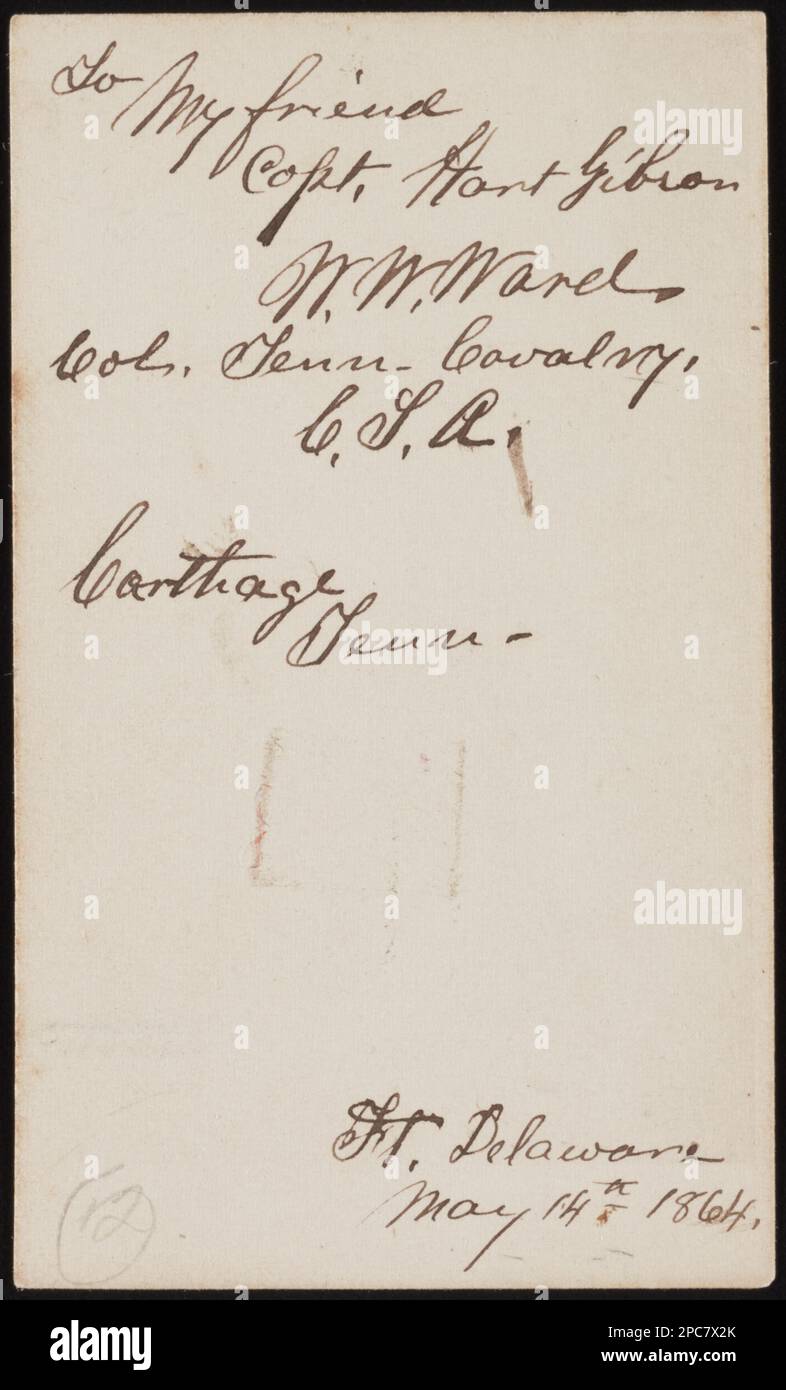 To
My friend
Capt. Hart Gibson
W. W. Ward
Col. Tenn- Cavalry.
C. S. A.
Carthage
Tenn-
Ft. Delaware
May 14th 1864.
12
a
alamy
Image ID: 2PC7X2K
www.alamy.com